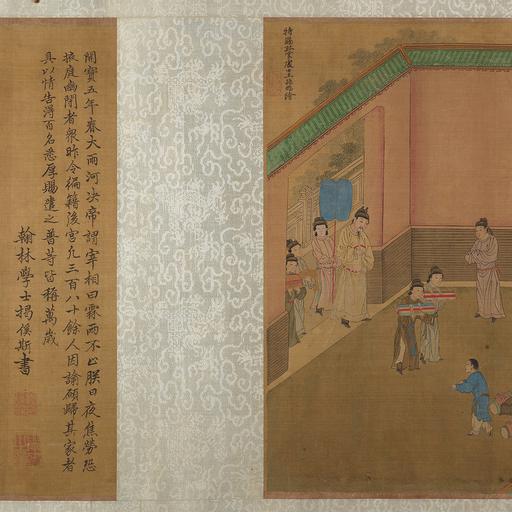 特賜孤雲處士王振鵬繪
開寶五年春大雨河決帝謂宰相曰霖雨不止朕日夜焦勞恐
掖庭幽閉者衆昨令徧籍後宮凡三百八十餘人因諭願歸其家者
具以情告得百名悉厚賜遣之普等皆稱萬歲
翰林學士揭傒斯書